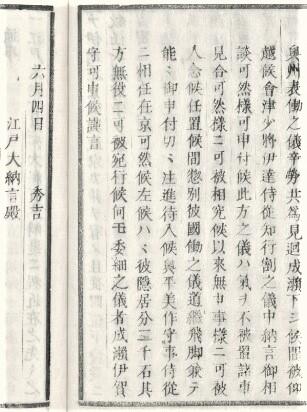 奥州表働之儀辛勞共爲見廻成瀬下シ候間被仰
越候會津少將伊達侍從知行割之儀中納言御相
談可然樣可申付候此方之儀ハ氣ヲ不被置諸事
見合可然樣ニ可被相究候以來無申事樣ニ可被
入念候任置候間惣別被國働之儀道繼飛脚兼テ
能〻御申付切〻注進待入候與平美作守事侍從
ニ相任在京可然候左候ハヽ彼隱居分三千石其
方無役ニ可被宛行候何モ委細之儀者成瀬伊賀
守可申候謹言
六月四日 秀吉
江戸大納言殿